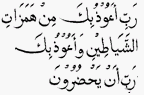 رَبِّ أَعُوذُ بِكَ مِنْ هَمَزَاتِ
الشَّيَاطِينِ وَأَعُوذُ بِكَ
رَبِّ أَنْ يَحْضُرُونَ